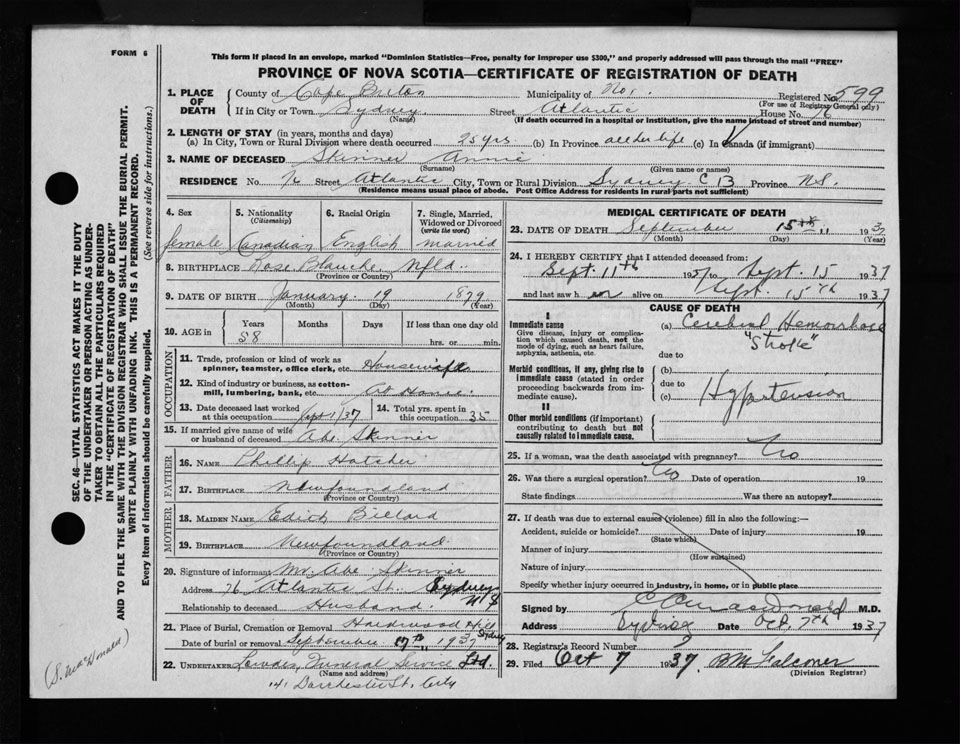 FORM 6
This form if placed in an envelope, marked "Dominion Statistics—Free, penalty for improper use $300," and properly addressed will pass through the mail "FREE"
PROVINCE OF NOVA SCOTIA—CERTIFICATE OF REGISTRATION OF DEATH
1. PLACE OF DEATH
County of Cape Breton Municipality of No 1. Registered No. 599
(For use of Registrar General only)
If in City or Town Sydney Street Atlantic House No. 76
(Name) (If death occurred in a hospital or institution, give the name instead of street and number)
2. LENGTH OF STAY (in years, months and days)
(a) In City, Town or Rural Division where death occurred 25 yrs (b) In Province all her life (c) In Canada (if immigrant)
3. NAME OF DECEASED Skinner Annie
(Surname) (Given name or names)
RESIDENCE No. 76 Street Atlantic City, Town or Rural Division Sydney C B Province N.S.
(Residence means usual place of abode. Post Office Address for residents in rural parts not sufficient)
4. Sex female
5. Nationality (Citizenship) Canadian
6. Racial Origin English
7. Single, Married, Widowed or Divorced (write the word) married
8. BIRTHPLACE Rose Blanche Nfld.
(Province or Country)
9. DATE OF BIRTH January 19 1879
(Month) (Day) (Year)
10. AGE in Years Months Days If less than one day old
58 hrs. or min.
OCCUPATION
11. Trade, profession or kind of work as spinner, teamster, office clerk, etc. Housewife
12. Kind of industry or business, as cotton-mill, lumbering, bank, etc. At Home
13. Date deceased last worked at this occupation Sept 1/37
14. Total yrs. spent in this occupation 35
15. If married give name of wife or husband of deceased Abe Skinner
FATHER
16. NAME Phillip Hatcher
17. BIRTHPLACE Newfoundland
(Province or Country)
MOTHER
18. MAIDEN NAME Edith Billard
19. BIRTHPLACE Newfoundland
(Province or Country)
20. Signature of informant Mr. Abe Skinner
Address 76 Atlantic St. Sydney N S
Relationship to deceased Husband.
21. Place of Burial, Cremation or Removal Hardwood Hill Sydney
Date of burial or removal September 17th 1937
22. UNDERTAKER Lowdes Funeral Service Ltd.
(Name and address)
141 Dorchester St. City
MEDICAL CERTIFICATE OF DEATH
23. DATE OF DEATH September 15th 1937
(Month) (Day) (Year)
24. I HEREBY CERTIFY that I attended deceased from:
Sept. 11th 1937 to Sept. 15 1937
and last saw h er alive on Sept. 15th 1937
CAUSE OF DEATH
I
Immediate cause
Give disease, injury or complication which caused death, not the mode of dying, such as heart failure, asphyxia, asthenia, etc.
(a) Cerebral Hemorrhage
"Stroke"
due to
Morbid conditions, if any, giving rise to immediate cause (stated in order proceeding backwards from immediate cause).
(b)
due to
(c) Hypertension
II
Other morbid conditions (if important) contributing to death but not causally related to immediate cause.
25. If a woman, was the death associated with pregnancy? No
26. Was there a surgical operation? No Date of operation 19
State findings Was there an autopsy?
27. If death was due to external causes (violence) fill in also the following:—
Accident, suicide or homicide? Date of injury 19
(State which)
Manner of injury
(How sustained)
Nature of injury
Specify whether injury occurred in industry, in home, or in public place
Signed by MacDonald M.D.
Address Sydney Date Oct. 7th 1937
28. Registrar's Record Number
29. Filed Oct 7 1937. B M Falconer
(Division Registrar)
SEC. 46—VITAL STATISTICS ACT MAKES IT THE DUTY
OF THE UNDERTAKER OR PERSON ACTING AS UNDER-
TAKER TO OBTAIN ALL THE PARTICULARS REQUIRED
IN THE "CERTIFICATE OF REGISTRATION OF DEATH"
AND TO FILE THE SAME WITH THE DIVISION REGISTRAR WHO SHALL ISSUE THE BURIAL PERMIT.
WRITE PLAINLY WITH UNFADING INK. THIS IS A PERMANENT RECORD.
Every item of information should be carefully supplied. (See reverse side for instructions.)